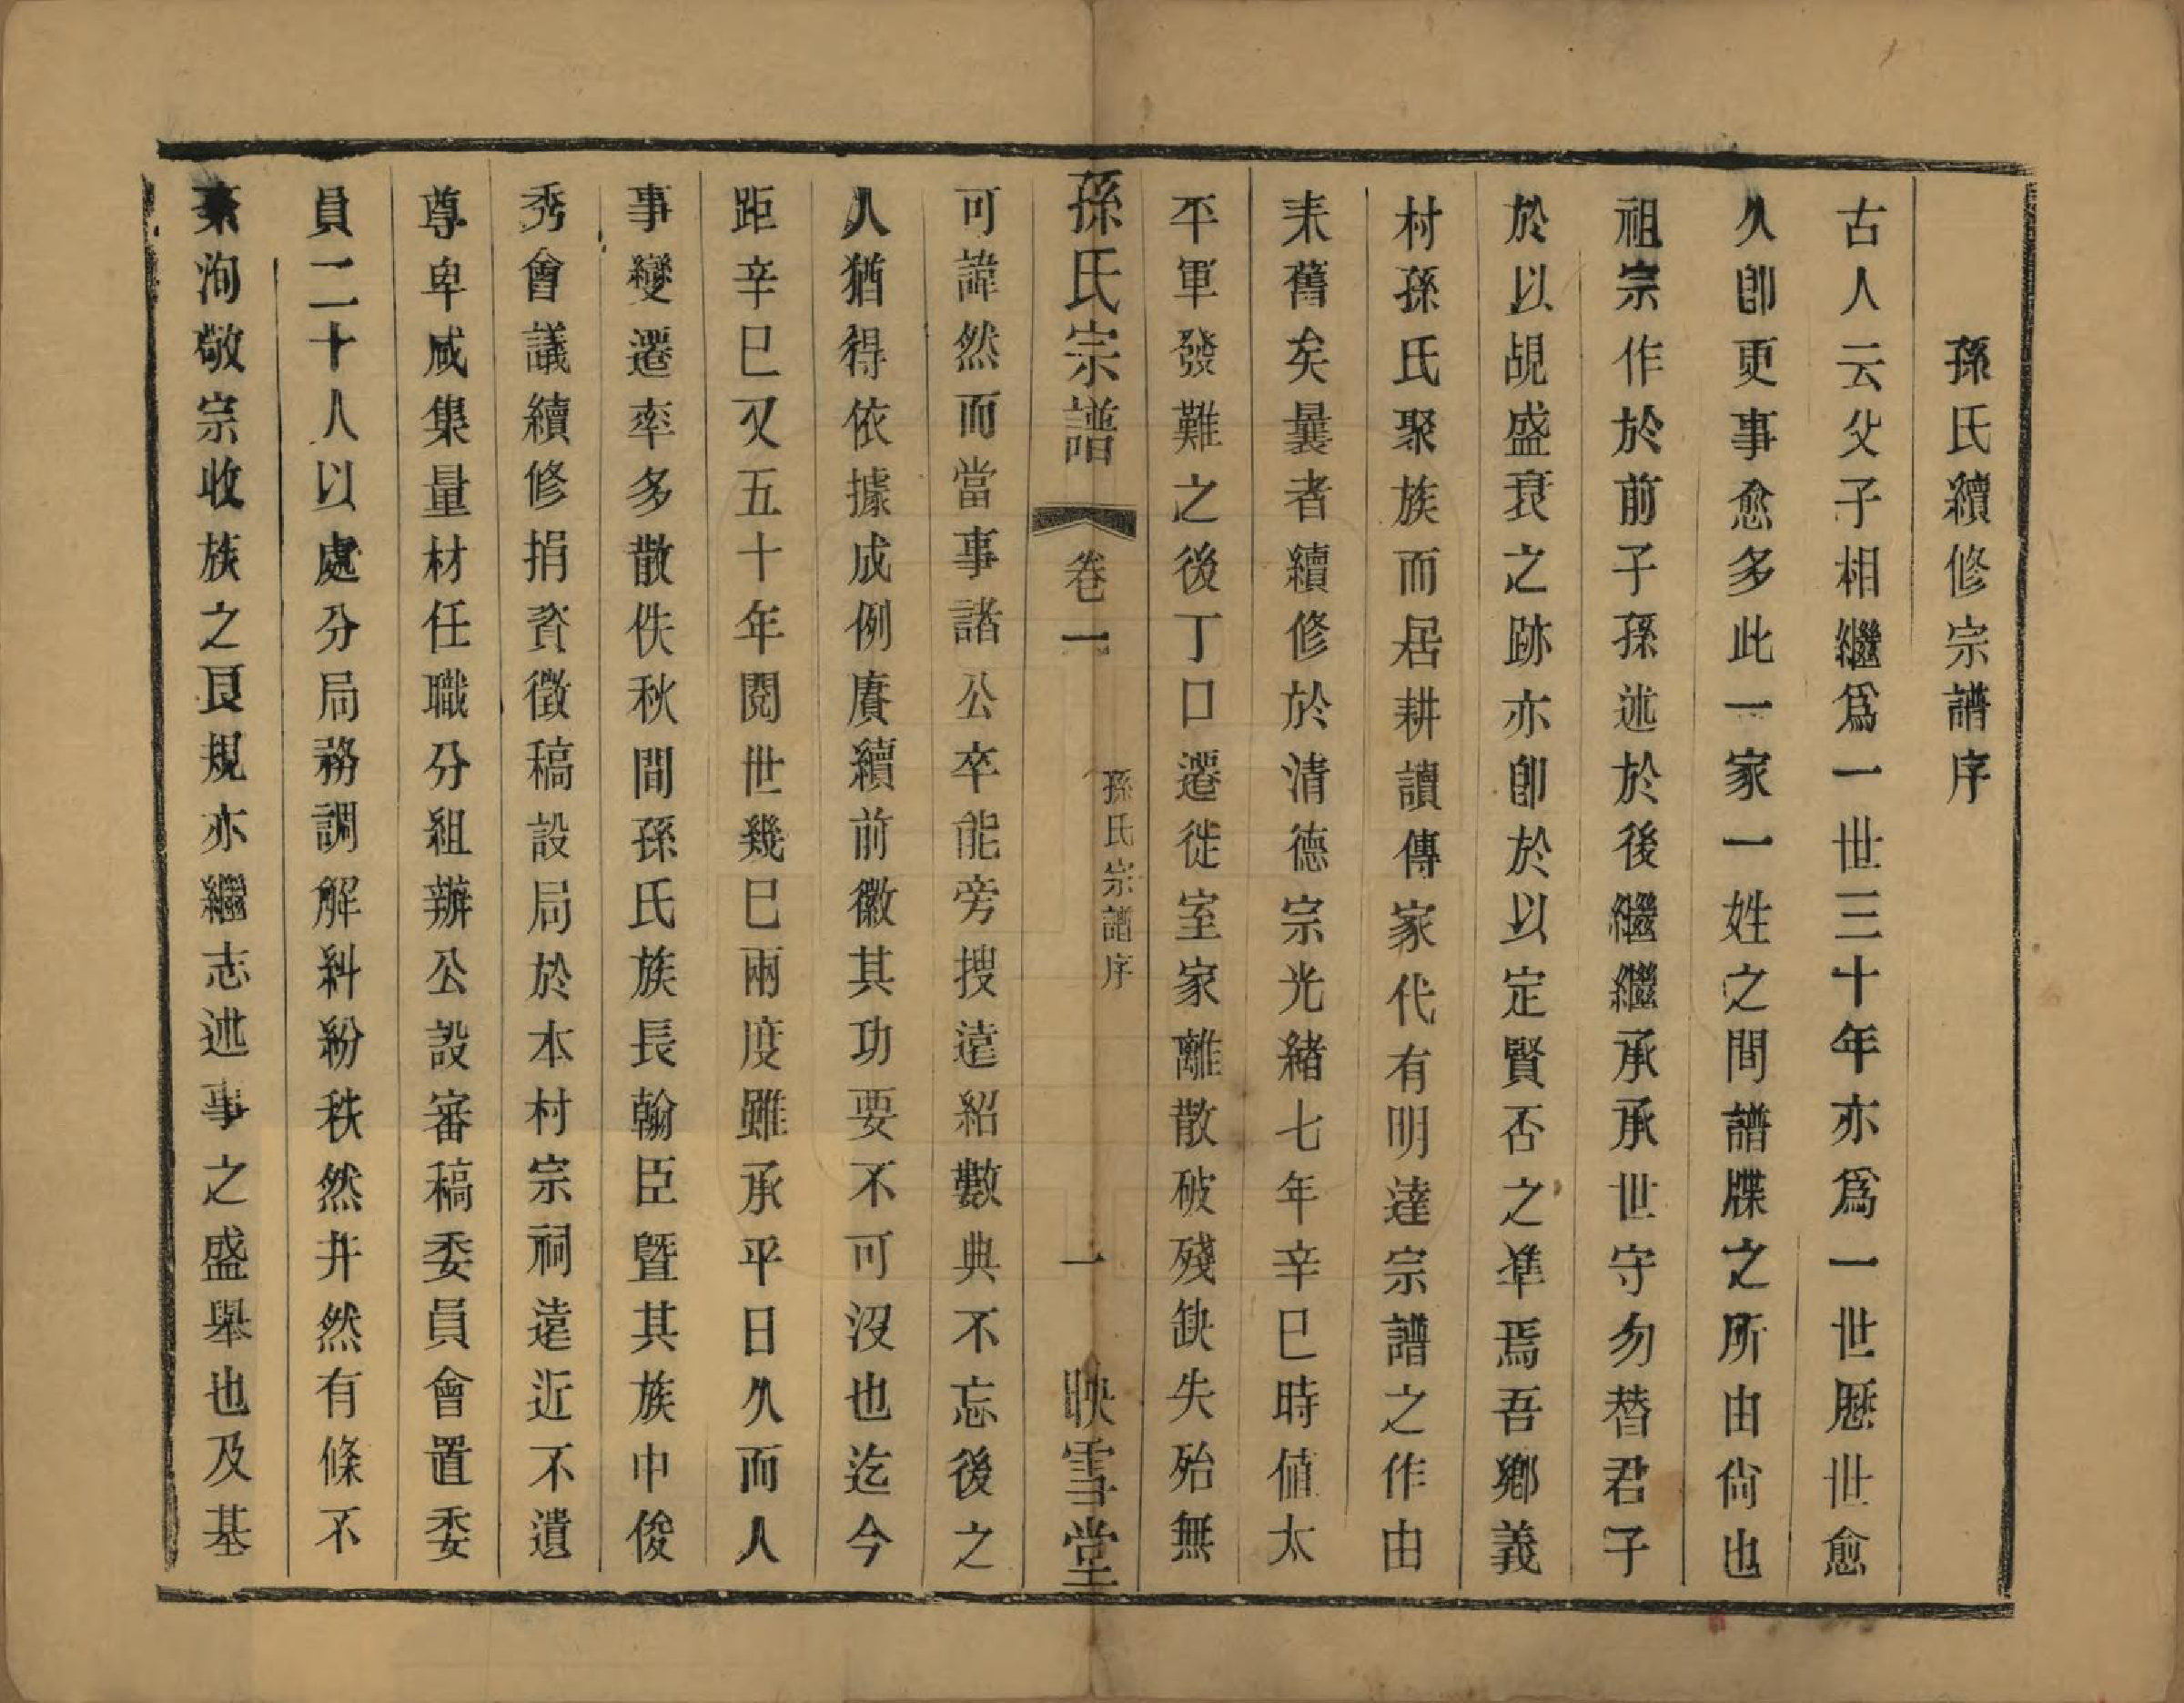 孫氏續修宗譜序
古人云父子相繼爲一世三十年亦爲一世歷世愈
久卽更事愈多此一家一姓之間譜牒之所由尙也
祖宗作於前子孫述於後繼繼承承世守勿替君子
於以覘盛衰之跡亦卽於以定賢否之準焉吾鄉義
村孫氏聚族而居耕讀傳家代有明達宗譜之作由
來舊矣曩者續修於清德宗光緒七年辛巳時値太
平軍發難之後丁口遷徙室家離散破殘缺失殆無
孫氏宗譜 卷一 孫氏宗譜序 一 映雪堂
可諱然而當事諸公卒能旁搜遠紹數典不忘後之
人猶得依據成例賡續前徽其功要不可沒也迄今
距辛巳又五十年閱世幾巳兩度雖承平日久而人
事變遷率多散佚秋間孫氏族長翰臣曁其族中俊
秀會議續修捐資徵稿設局於本村宗祠遠近不遺
尊卑咸集量材任職分組辦公設審稿委員會置委
員二十人以處分局務調解糾紛秩然井然有條不
紊洵敬宗收族之良規亦繼志述事之盛舉也及基